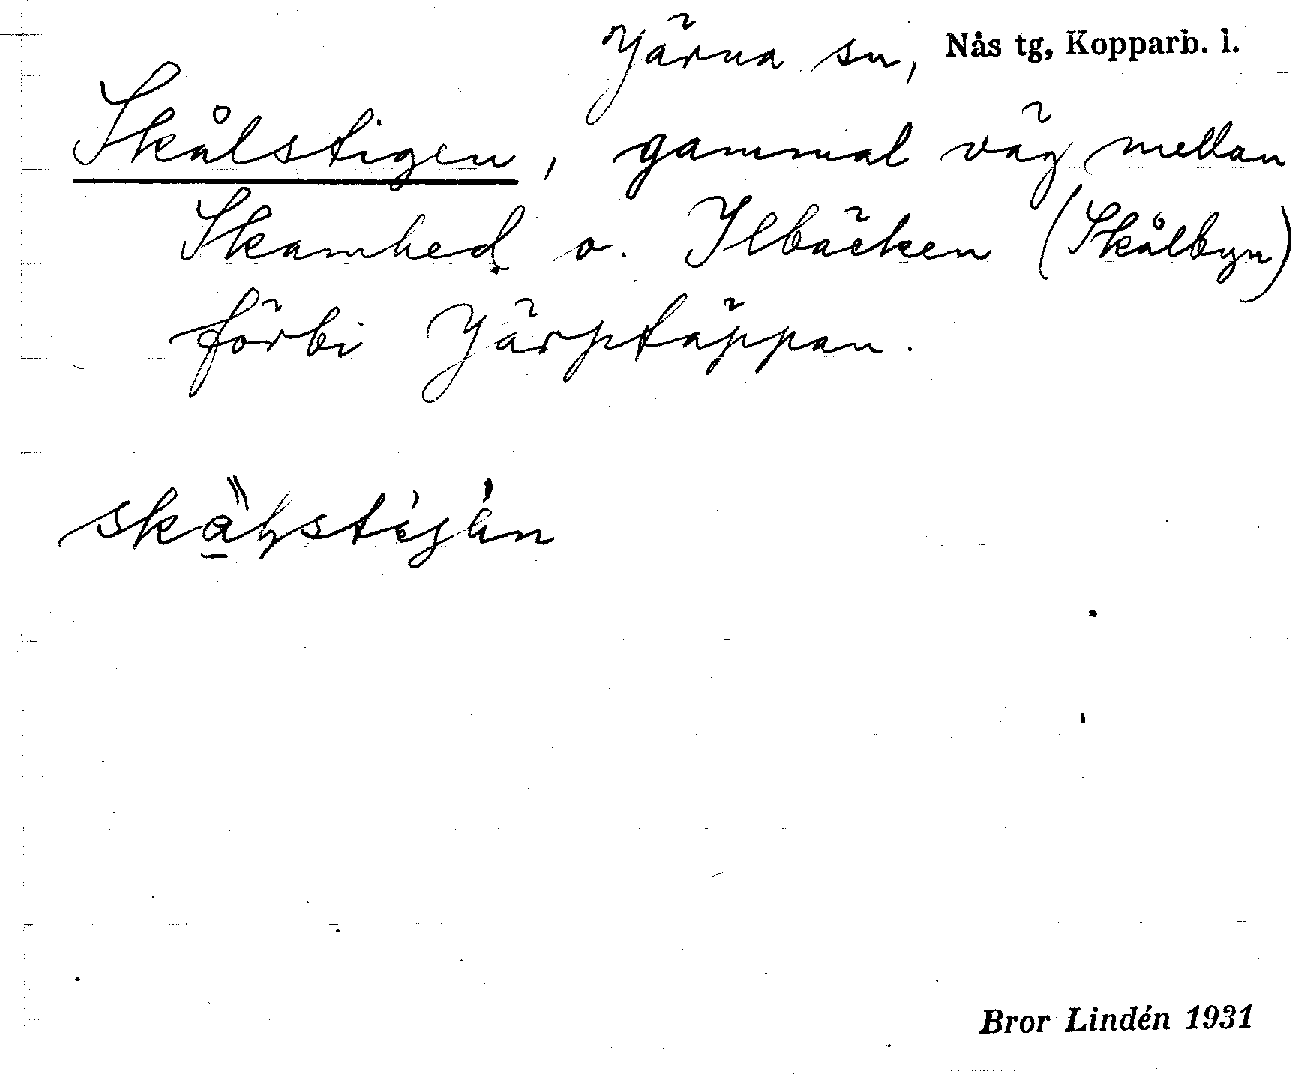 Järna sn, Nås tg, Kopparb. l.
Skålstigen, gammal väg mellan
Skamhed o. Ilbäcken (Skålbyn)
förbi Järptäppan.
Bror Lindén 1931